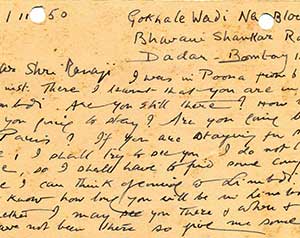 1 11 50 Gokhale Wadi No Blo
Bhavani Shankar Ro
Dadar - Bombay 1
ar Shri I was in Poona from
inst. There I learnt that you are in
mbdi. Are you still there? How
you going to stay? Are you going
Paris? If you are staying for
, I shall try to see you I do not
e, so I shall have to find some com
e I can think of coming to Limbdi
know how long you will be in Limb
hether I may see you there & when &
ave not been there so give me some